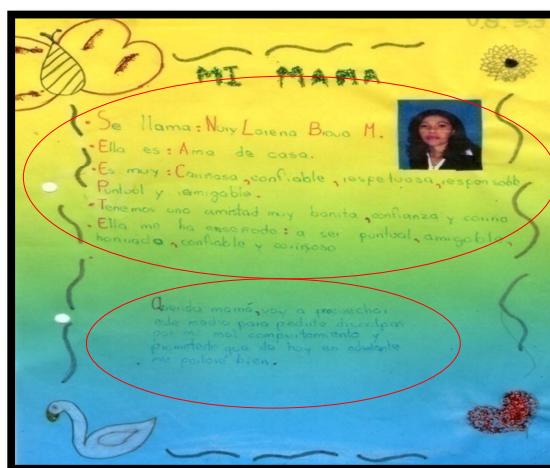 V.B. 3.3
MI MAMA
Se llama: Nury Lorena Bravo M.
Ella es: Ama de casa.
Es muy: Cariñosa, confiable, respetuosa, responsable
Puntual y amigable.
Tenemos una amistad muy bonita, confianza y cariño
Ella me ha enseñado: a ser puntual, amigable,
honrado, confiable y cariñoso
Querida mamá, voy a aprovechar
este medio para pedirte disculpas
por mi mal comportamiento y
prometerte que de hoy en adelante
me portaré bien.